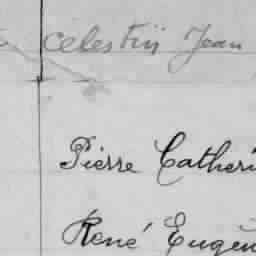 celestin Jean
Pierre Catheri
René Eugèn